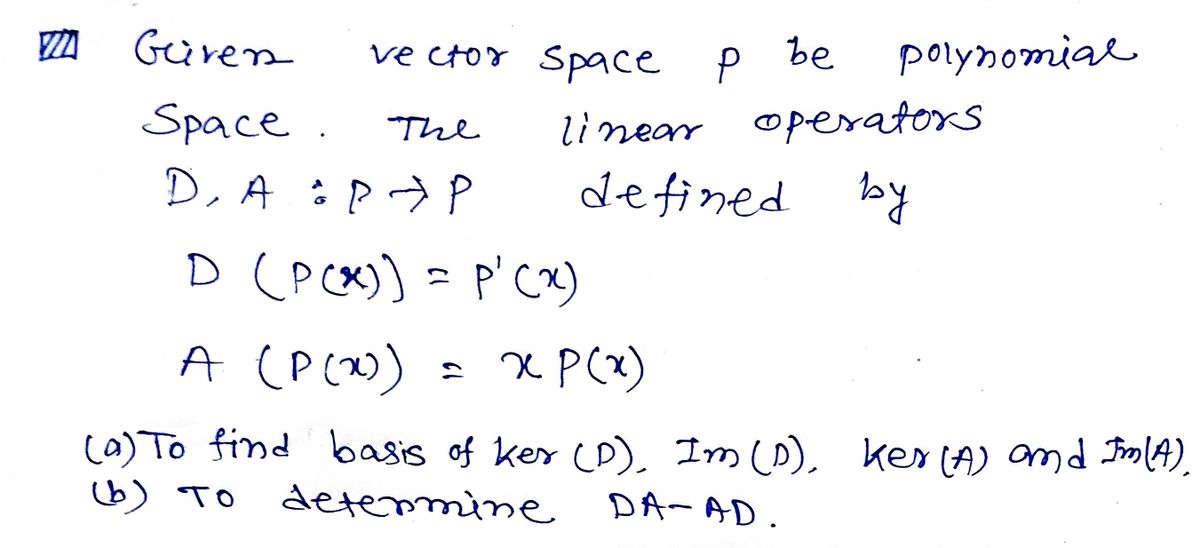 Given vector space p be polynomial
Space. The linear operators
D, A : P → P defined by
D (P(x)) = p'(x)
A (P(x)) = x P(x)
(a) To find basis of ker (D), Im (D), Ker (A) and Im(A).
(b) To determine DA-AD.